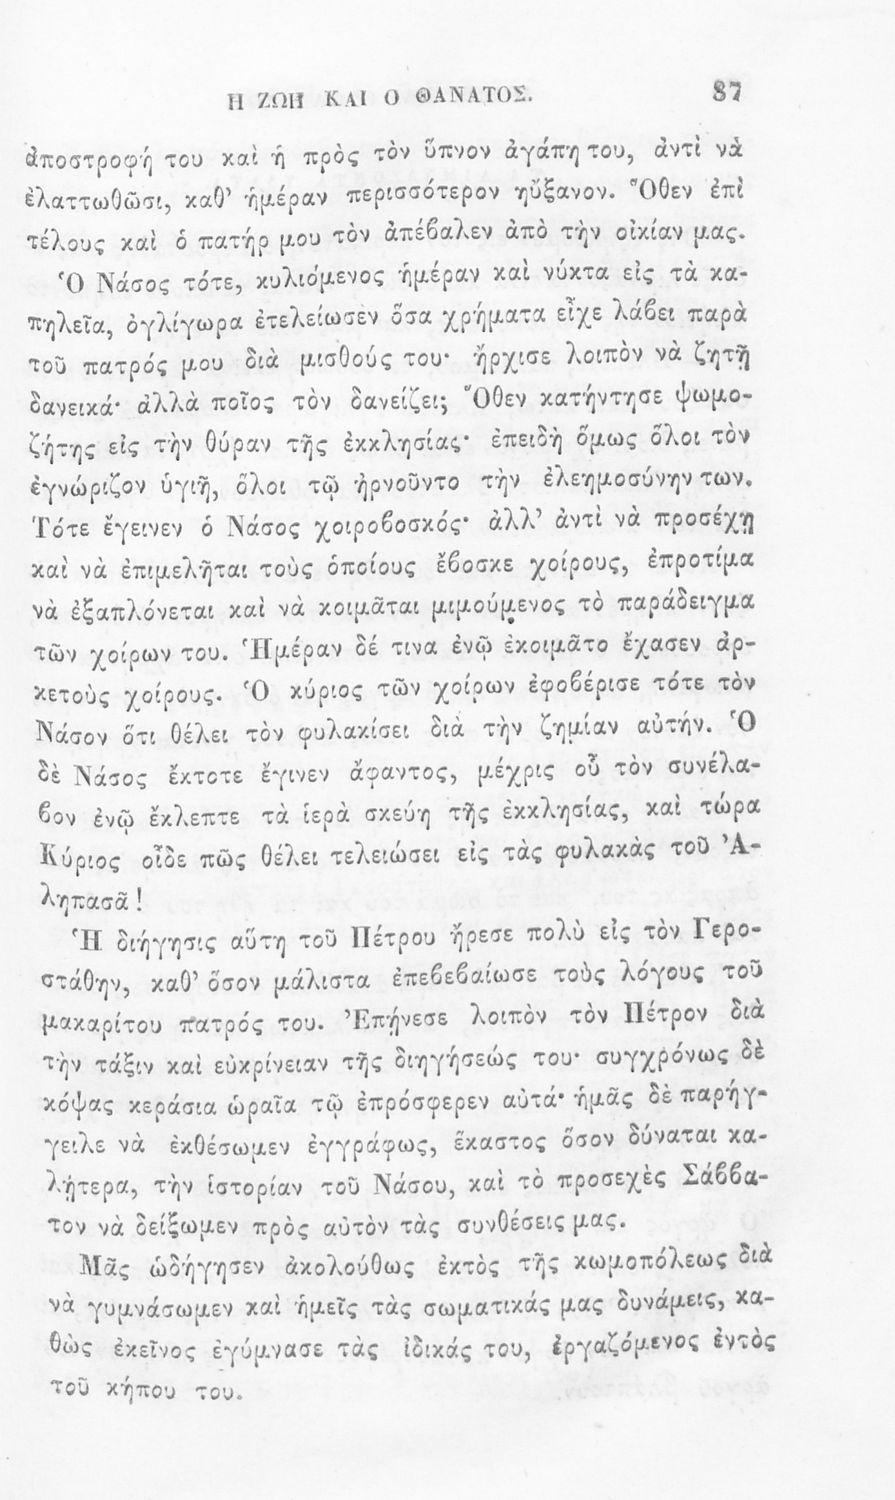 Η ΖΩΗ ΚΑΙ Ο ΘΑΝΑΤΟΣ. 87
ἀποστροφή του καὶ ἡ πρὸς τὸν ὕπνον ἀγάπη του, ἀντὶ νὰ
ἐλαττωθῶσι, καθ’ ἡμέραν περισσότερον ηὔξανον. Ὅθεν ἐπὶ
τέλους καὶ ὁ πατήρ μου τὸν ἀπέβαλεν ἀπὸ τὴν οἰκίαν μας.
Ὁ Νάσος τότε, κυλιόμενος ἡμέραν καὶ νύκτα εἰς τὰ κα-
πηλεῖα, ὀγλίγωρα ἐτελείωσεν ὅσα χρήματα εἶχε λάβει παρὰ
τοῦ πατρός μου διὰ μισθούς του· ἤρχισε λοιπὸν νὰ ζητῇ
δανεικά· ἀλλὰ ποῖος τὸν δανείζει; Ὅθεν κατήντησε ψωμο-
ζήτης εἰς τὴν θύραν τῆς ἐκκλησίας· ἐπειδὴ ὅμως ὅλοι τὸν
ἐγνώριζον ὑγιῆ, ὅλοι τῷ ἠρνοῦντο τὴν ἐλεημοσύνην των.
Τότε ἔγεινεν ὁ Νάσος χοιροβοσκός· ἀλλ’ ἀντὶ νὰ προσέχῃ
καὶ νὰ ἐπιμελῆται τοὺς ὁποίους ἔβοσκε χοίρους, ἐπροτίμα
νὰ ἐξαπλόνεται καὶ νὰ κοιμᾶται μιμούμενος τὸ παράδειγμα
τῶν χοίρων του. Ἡμέραν δέ τινα ἐνῷ ἐκοιμᾶτο ἔχασεν ἀρ-
κετοὺς χοίρους. Ὁ κύριος τῶν χοίρων ἐφοβέρισε τότε τὸν
Νάσον ὅτι θέλει τὸν φυλακίσει διὰ τὴν ζημίαν αὐτήν. Ὁ
δὲ Νάσος ἔκτοτε ἔγινεν ἄφαντος, μέχρις οὗ τὸν συνέλα-
βον ἐνῷ ἔκλεπτε τὰ ἱερὰ σκεύη τῆς ἐκκλησίας, καὶ τώρα
Κύριος οἶδε πῶς θέλει τελειώσει εἰς τὰς φυλακὰς τοῦ Ἀ-
ληπασᾶ!
Ἡ διήγησις αὕτη τοῦ Πέτρου ἤρεσε πολὺ εἰς τὸν Γερο-
στάθην, καθ’ ὅσον μάλιστα ἐπεβεβαίωσε τοὺς λόγους τοῦ
μακαρίτου πατρός του. Ἐπῄνεσε λοιπὸν τὸν Πέτρον διὰ
τὴν τάξιν καὶ εὐκρίνειαν τῆς διηγήσεώς του· συγχρόνως δὲ
κόψας κεράσια ὡραῖα τῷ ἐπρόσφερεν αὐτά· ἡμᾶς δὲ παρήγ-
γειλε νὰ ἐκθέσωμεν ἐγγράφως, ἕκαστος ὅσον δύναται κα-
λήτερα, τὴν ἱστορίαν τοῦ Νάσου, καὶ τὸ προσεχὲς Σάββα-
τον νὰ δείξωμεν πρὸς αὐτὸν τὰς συνθέσεις μας.
Μᾶς ὡδήγησεν ἀκολούθως ἐκτὸς τῆς κωμοπόλεως διὰ
νὰ γυμνάσωμεν καὶ ἡμεῖς τὰς σωματικάς μας δυνάμεις, κα-
θὼς ἐκεῖνος ἐγύμνασε τὰς ἰδικάς του, ἐργαζόμενος ἐντὸς
τοῦ κήπου του.